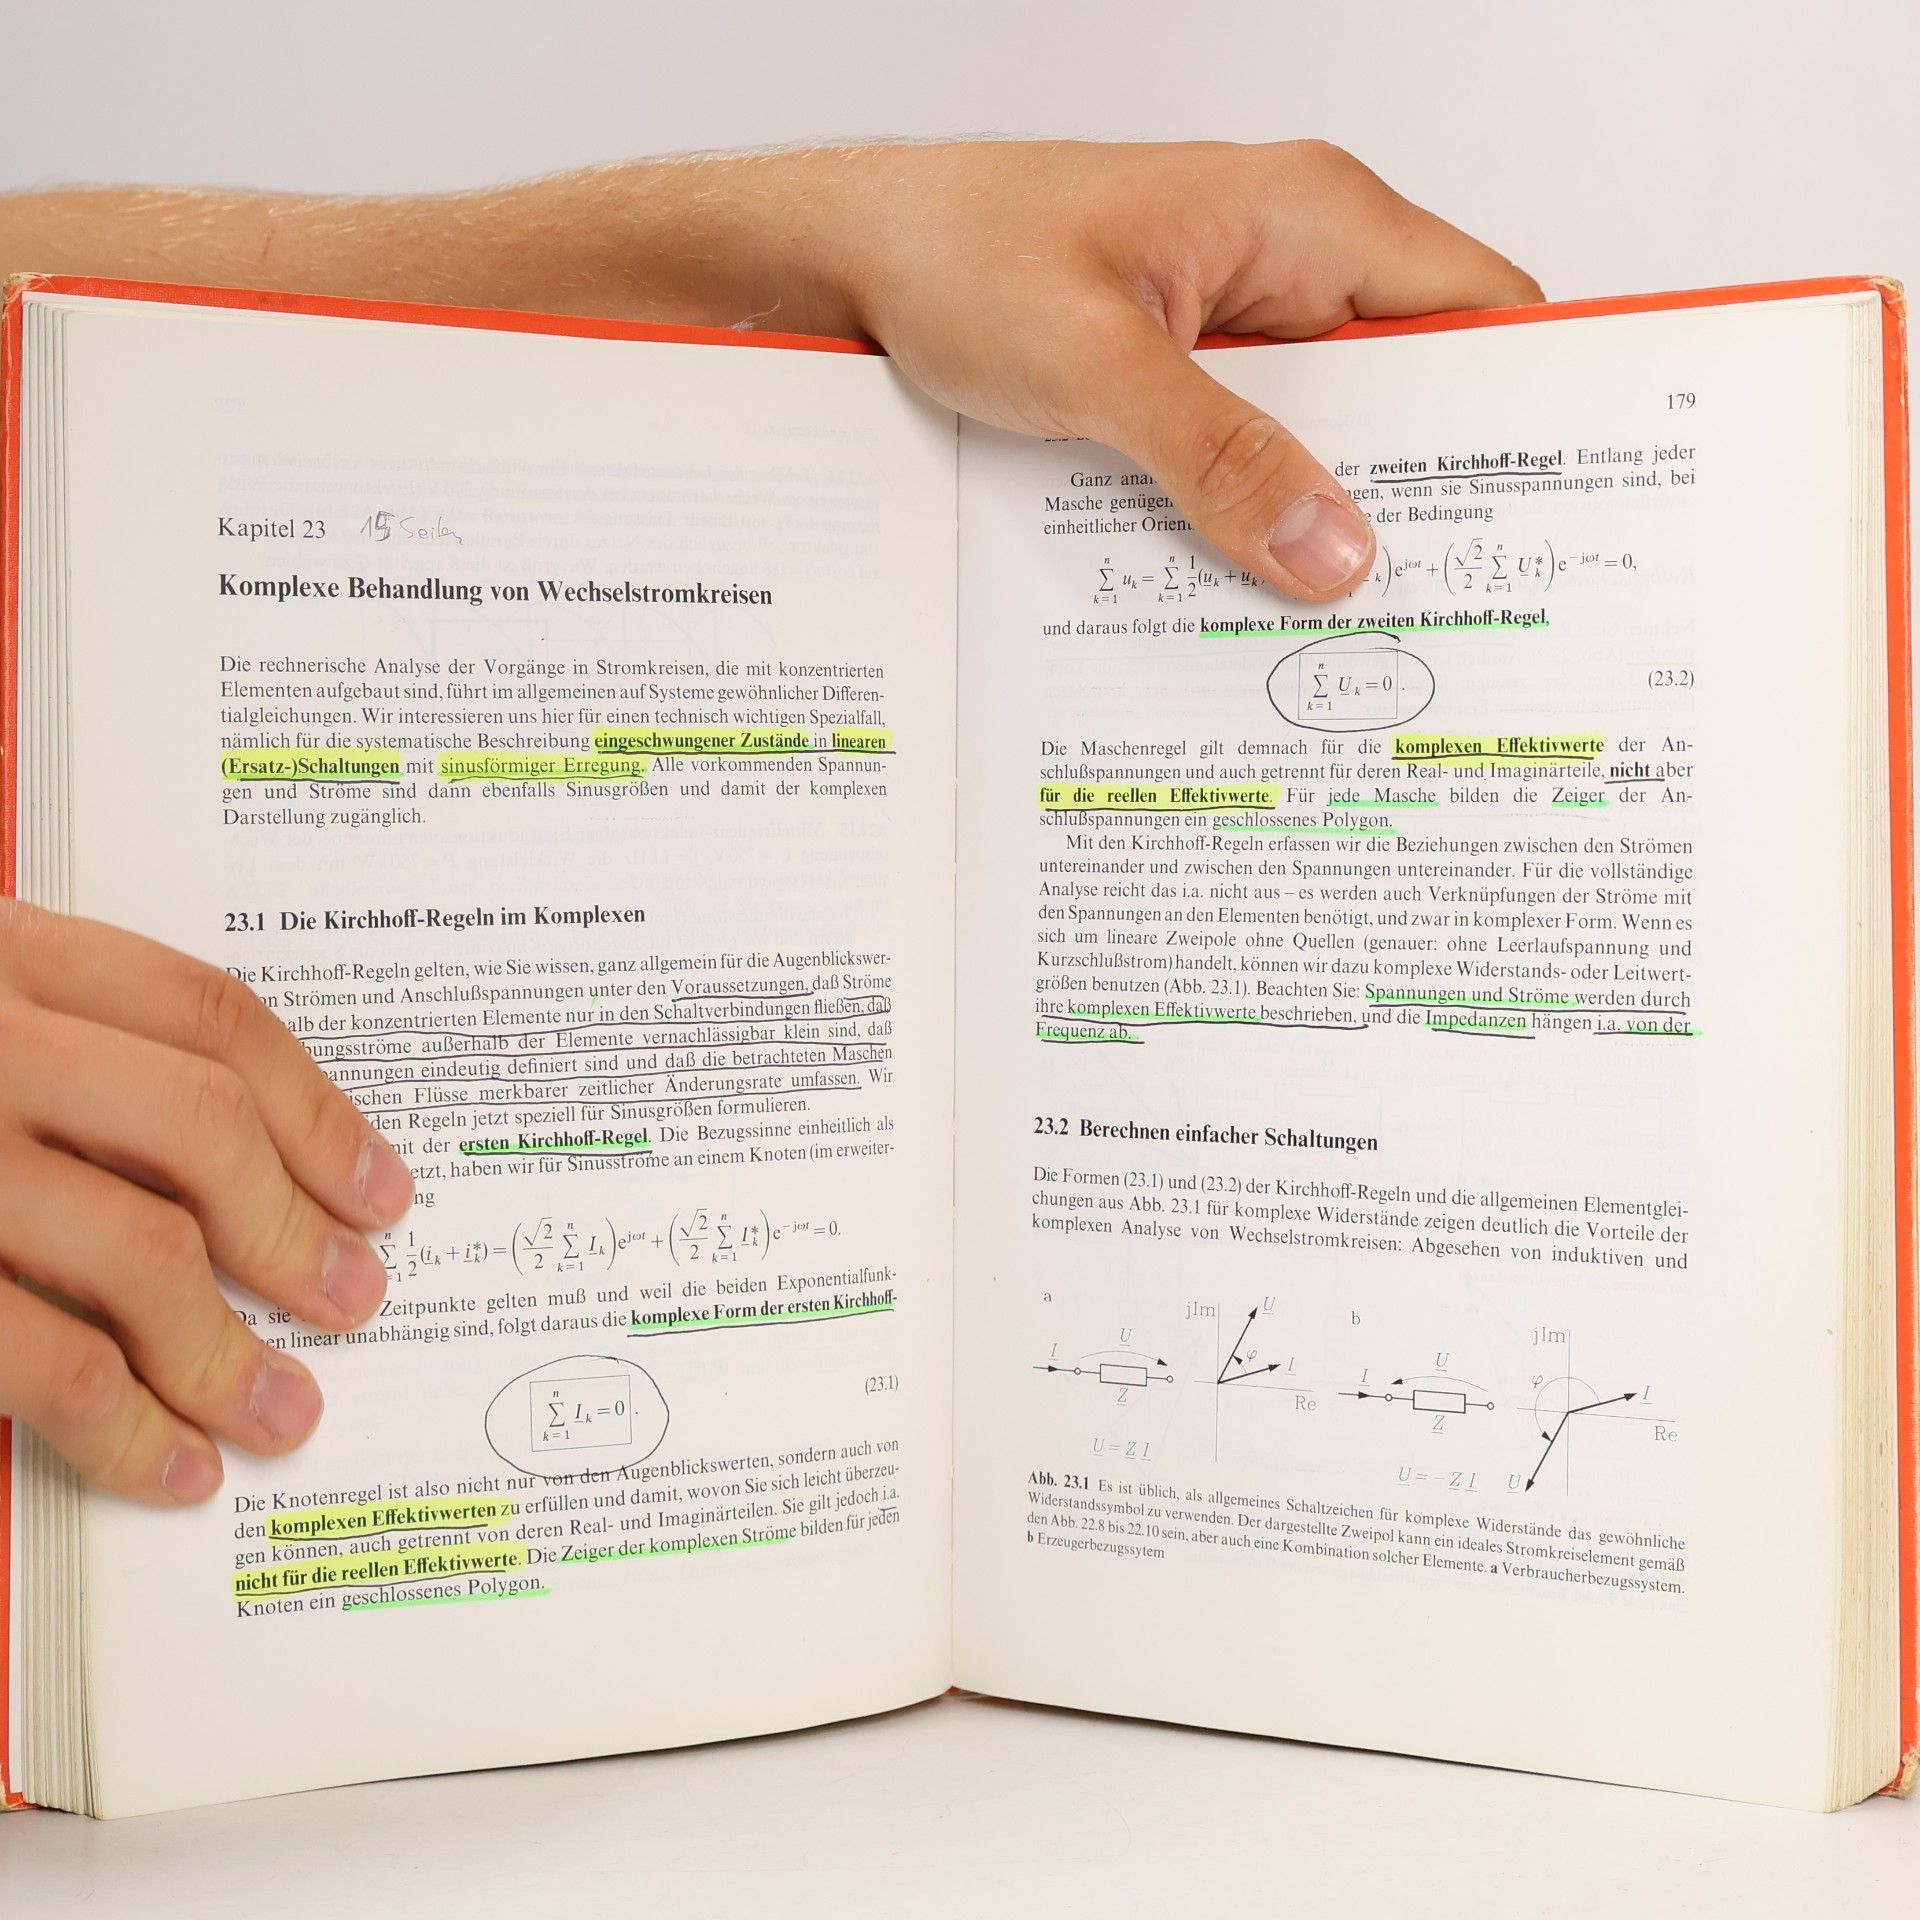 Kapitel 23 15 Seiten
Komplexe Behandlung von Wechselstromkreisen
Die rechnerische Analyse der Vorgänge in Stromkreisen, die mit konzentrierten
Elementen aufgebaut sind, führt im allgemeinen auf Systeme gewöhnlicher Differen-
tialgleichungen. Wir interessieren uns hier für einen technisch wichtigen Spezialfall,
nämlich für die systematische Beschreibung eingeschwungener Zustände in linearen
(Ersatz-)Schaltungen mit sinusförmiger Erregung. Alle vorkommenden Spannun-
gen und Ströme sind dann ebenfalls Sinusgrößen und damit der komplexen
Darstellung zugänglich.
23.1 Die Kirchhoff-Regeln im Komplexen
Die Kirchhoff-Regeln gelten, wie Sie wissen, ganz allgemein für die Augenblickswer-
on Strömen und Anschlußspannungen unter den Voraussetzungen, daß Ströme
alb der konzentrierten Elemente nur in den Schaltverbindungen fließen, daß
bungsströme außerhalb der Elemente vernachlässigbar klein sind, daß
annungen eindeutig definiert sind und daß die betrachteten Maschen
ischen Flüsse merkbarer zeitlicher Änderungsrate umfassen. Wir
den Regeln jetzt speziell für Sinusgrößen formulieren.
mit der ersten Kirchhoff-Regel. Die Bezugssinne einheitlich als
etzt, haben wir für Sinusströme an einem Knoten (im erweiter-
ng
n∑=1 1/2 (i_k + i_k*) = (√2/2 n∑k=1 I_k) e^jωt + (√2/2 n∑k=1 I_k*) e^−jωt = 0.
Da sie Zeitpunkte gelten muß und weil die beiden Exponentialfunk-
en linear unabhängig sind, folgt daraus die komplexe Form der ersten Kirchhoff-
n∑k=1 I_k = 0 . (23.1)
Die Knotenregel ist also nicht nur von den Augenblickswerten, sondern auch von
den komplexen Effektivwerten zu erfüllen und damit, wovon Sie sich leicht überzeu-
gen können, auch getrennt von deren Real- und Imaginärteilen. Sie gilt jedoch i.a.
nicht für die reellen Effektivwerte. Die Zeiger der komplexen Ströme bilden für jeden
Knoten ein geschlossenes Polygon.
179
Ganz ana der zweiten Kirchhoff-Regel. Entlang jeder
Masche genügen gen, wenn sie Sinusspannungen sind, bei
einheitlicher Orien der Bedingung
n∑k=1 u_k = n∑k=1 1/2 (u_k + u_k k) e^jωt + (√2/2 n∑k=1 U_k*) e^−jωt = 0,
und daraus folgt die komplexe Form der zweiten Kirchhoff-Regel,
n∑k=1 U_k = 0 . (23.2)
Die Maschenregel gilt demnach für die komplexen Effektivwerte der An-
schlußspannungen und auch getrennt für deren Real- und Imaginärteile, nicht aber
für die reellen Effektivwerte. Für jede Masche bilden die Zeiger der An-
schlußspannungen ein geschlossenes Polygon.
Mit den Kirchhoff-Regeln erfassen wir die Beziehungen zwischen den Strömen
untereinander und zwischen den Spannungen untereinander. Für die vollständige
Analyse reicht das i.a. nicht aus – es werden auch Verknüpfungen der Ströme mit
den Spannungen an den Elementen benötigt, und zwar in komplexer Form. Wenn es
sich um lineare Zweipole ohne Quellen (genauer: ohne Leerlaufspannung und
Kurzschlußstrom) handelt, können wir dazu komplexe Widerstands- oder Leitwert-
größen benutzen (Abb. 23.1). Beachten Sie: Spannungen und Ströme werden durch
ihre komplexen Effektivwerte beschrieben, und die Impedanzen hängen i.a. von der
Frequenz ab.
23.2 Berechnen einfacher Schaltungen
Die Formen (23.1) und (23.2) der Kirchhoff-Regeln und die allgemeinen Elementglei-
chungen aus Abb. 23.1 für komplexe Widerstände zeigen deutlich die Vorteile der
komplexen Analyse von Wechselstromkreisen: Abgesehen von induktiven und
a
I U Z
U = Z I
jIm U φ I Re
b
I U Z
U = −Z I
jIm φ I Re U
Abb. 23.1 Es ist üblich, als allgemeines Schaltzeichen für komplexe Widerstände das gewöhnliche
Widerstandssymbol zu verwenden. Der dargestellte Zweipol kann ein ideales Stromkreiselement gemäß
den Abb. 22.8 bis 22.10 sein, aber auch eine Kombination solcher Elemente. a Verbraucherbezugssystem.
b Erzeugerbezugssytem